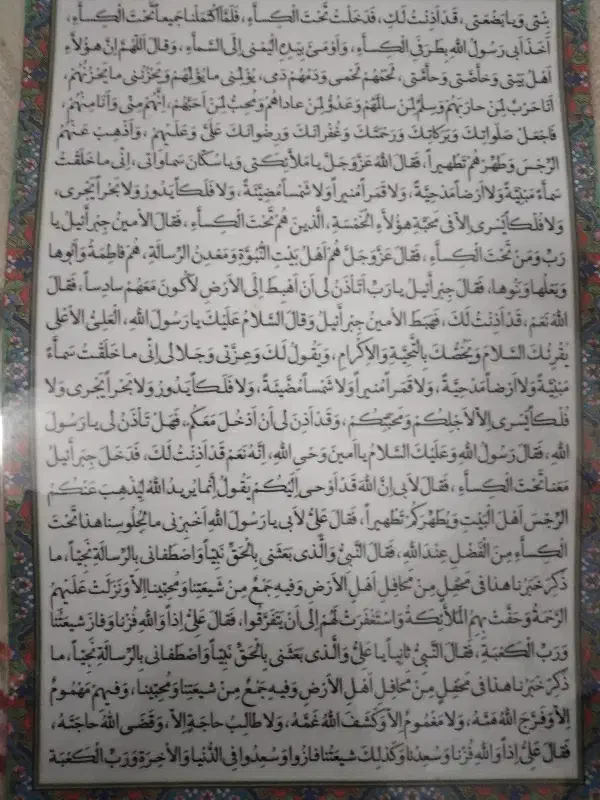 بِنْتِي وَيَا بَضْعَتِي، قَدْ اَذِنْتُ لَكِ، فَدَخَلْتُ تَحْتَ الْكِسآءِ، فَلَمَّا اكْتَمَلْنا جَميعاً تَحْتَ الْكِسآءِ،
اَخَذَ اَبي رَسُولُ اللهِ بِطَرَفَيِ الْكِسآءِ، وَاَوْمَئَ بِيَدِهِ الْيُمْنى اِلَى السَّمآءِ، وَقالَ اَللّهُمَّ اِنَّ هؤُلآءِ
اَهْلُ بَيْتي وَخآصَّتي وَحآمَّتي، لَحْمُهُمْ لَحْمي وَدَمُهُمْ دَمي، يُؤْلِمُني ما يُؤْلِمُهُمْ وَيَحْزُنُني ما يَحْزُنُهُمْ،
اَنَا حَرْبٌ لِمَنْ حارَبَهُمْ وَسِلْمٌ لِمَنْ سالَمَهُمْ وَعَدُوٌّ لِمَنْ عاداهُمْ وَمُحِبٌّ لِمَنْ اَحَبَّهُمْ، اِنَّهُمْ مِنّي وَاَنَا مِنْهُمْ،
فَاجْعَلْ صَلَواتِكَ وَبَرَكاتِكَ وَرَحْمَتَكَ وَغُفْرانَكَ وَرِضْوانَكَ عَلَيَّ وَعَلَيْهِمْ، وَاَذْهِبْ عَنْهُمُ
الرِّجْسَ وَطَهِّرْهُمْ تَطْهيراً، فَقالَ اللهُ عَزَّ وَجَلَّ يا مَلآئِكَتي وَيا سُكّانَ سَماواتي، اِنّي ما خَلَقْتُ
سَمآءً مَبْنِيَّةً وَلا اَرْضاً مَدْحِيَّةً، وَلا قَمَراً مُنيراً وَلا شَمْساً مُضيئَةً، وَلا فَلَكاً يَدُورُ وَلا بَحْراً يَجْري،
وَلا فُلْكاً يَسْري اِلاّ في مَحَبَّةِ هؤُلآءِ الْخَمْسَةِ، الَّذينَ هُمْ تَحْتَ الْكِسآءِ، فَقالَ الْاَمينُ جِبْرآئيلُ يا
رَبِّ وَمَنْ تَحْتَ الْكِسآءِ، فَقالَ عَزَّ وَجَلَّ هُمْ اَهْلُ بَيْتِ النُّبُوَّةِ وَمَعْدِنُ الرِّسالَةِ، هُمْ فاطِمَةُ وَاَبُوها
وَبَعْلُها وَبَنُوها، فَقالَ جِبْرآئيلُ يا رَبِّ اَتَأْذَنُ لي اَنْ اَهْبِطَ اِلَى الْاَرْضِ لِاَكُونَ مَعَهُمْ سادِساً، فَقالَ
اللهُ نَعَمْ، قَدْ اَذِنْتُ لَكَ، فَهَبَطَ الْاَمينُ جِبْرآئيلُ وَقالَ السَّلامُ عَلَيْكَ يا رَسُولَ اللهِ، الْعَلِيُّ الْاَعْلى
يُقْرِئُكَ السَّلامَ وَيَخُصُّكَ بِالتَّحِيَّةِ وَالْاِكْرامِ، وَيَقُولُ لَكَ وَعِزَّتي وَجَلالي اِنّي ما خَلَقْتُ سَمآءً
مَبْنِيَّةً وَلا اَرْضاً مَدْحِيَّةً، وَلا قَمَراً مُنيراً وَلا شَمْساً مُضيئَةً، وَلا فَلَكاً يَدُورُ وَلا بَحْراً يَجْري وَلا
فُلْكاً يَسْري اِلاّ لِاَجْلِكُمْ وَمَحَبَّتِكُمْ، وَقَدْ اَذِنَ لي اَنْ اَدْخُلَ مَعَكُمْ، فَهَلْ تَأْذَنُ لي يا رَسُولَ
اللهِ، فَقالَ رَسُولُ اللهِ وَعَلَيْكَ السَّلامُ يا اَمينَ وَحْيِ اللهِ، اِنَّهُ نَعَمْ قَدْ اَذِنْتُ لَكَ، فَدَخَلَ جِبْرآئيلُ
مَعَنا تَحْتَ الْكِسآءِ، فَقالَ لِاَبي اِنَّ اللهَ قَدْ اَوْحى اِلَيْكُمْ يَقُولُ اِنَّما يُريدُ اللهُ لِيُذْهِبَ عَنْكُمُ
الرِّجْسَ اَهْلَ الْبَيْتِ وَيُطَهِّرَكُمْ تَطْهيراً، فَقالَ عَلِيٌّ لِاَبي يا رَسُولَ اللهِ اَخْبِرْني ما لِجُلُوسِنا هذا تَحْتَ
الْكِسآءِ مِنَ الْفَضْلِ عِنْدَ اللهِ، فَقالَ النَّبِيُّ وَالَّذي بَعَثَني بِالْحَقِّ نَبِيّاً وَاصْطَفاني بِالرِّسالَةِ نَجِيّاً، ما
ذُكِرَ خَبَرُنا هذا في مَحْفِلٍ مِنْ مَحافِلِ اَهْلِ الْاَرْضِ وَفيهِ جَمْعٌ مِنْ شيعَتِنا وَمُحِبّينا اِلاّ وَنَزَلَتْ عَلَيْهِمُ
الرَّحْمَةُ وَحَفَّتْ بِهِمُ الْمَلآئِكَةُ وَاسْتَغْفَرَتْ لَهُمْ اِلى اَنْ يَتَفَرَّقُوا، فَقالَ عَلِيٌّ اِذاً وَاللهِ فُزْنا وَفازَ شيعَتُنا
وَرَبِّ الْكَعْبَةِ، فَقالَ النَّبِيُّ ثانِياً يا عَلِيُّ وَالَّذي بَعَثَني بِالْحَقِّ نَبِيّاً وَاصْطَفاني بِالرِّسالَةِ نَجِيّاً، ما
ذُكِرَ خَبَرُنا هذا في مَحْفِلٍ مِنْ مَحافِلِ اَهْلِ الْاَرْضِ وَفيهِ جَمْعٌ مِنْ شيعَتِنا وَمُحِبّينا، وَفيهِمْ مَهْمُومٌ
اِلاّ وَفَرَّجَ اللهُ هَمَّهُ، وَلا مَغْمُومٌ اِلاّ وَكَشَفَ اللهُ غَمَّهُ، وَلا طالِبُ حاجَةٍ اِلاّ، وَقَضَى اللهُ حاجَتَهُ،
فَقالَ عَلِيٌّ اِذاً وَاللهِ فُزْنا وَسُعِدْنا وَكَذلِكَ شيعَتُنا فازُوا وَسُعِدُوا فِي الدُّنْيا وَالْاخِرَةِ وَرَبِّ الْكَعْبَةِ